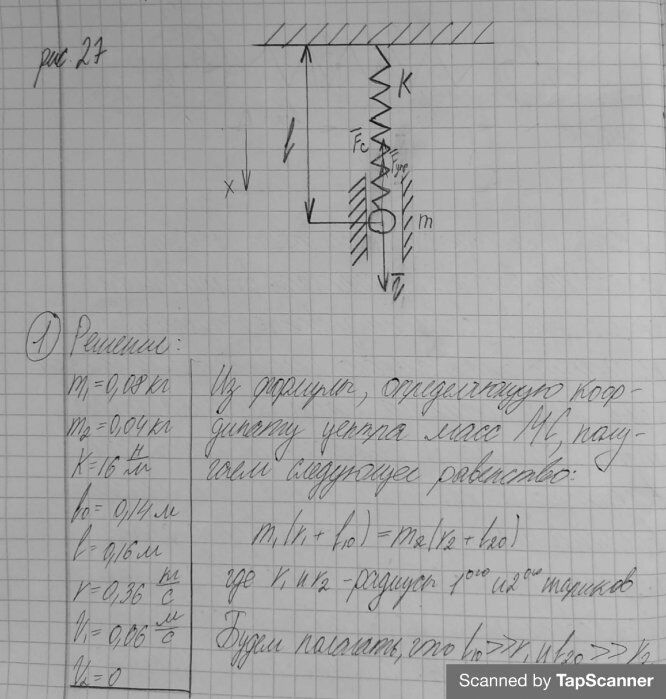 рис. 27
K
l
F̅с
F̅упр
x
m
v̅
① Решение:
m₁ = 0,08 кг
m₂ = 0,04 кг
K = 16 Н/м
l₀ = 0,14 м
l = 0,16 м
r = 0,36 кг/с
V₁ = 0,06 м/с
V₂ = 0
Из формулы, определяющую коор-
динату центра масс МС, полу-
чаем следующее равенство:
m₁(r₁ + l₁₀) = m₂(r₂ + l₂₀)
где r₁ и r₂ - радиусы 1ᵒᵍᵒ и 2ᵒᵍᵒ шариков
Будем полагать, что l₁₀ >> r₁ и l₂₀ >> r₂
Scanned by TapScanner